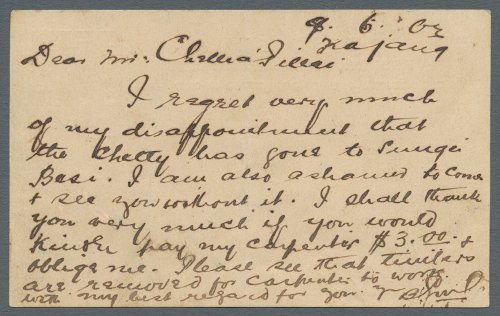 9. 6. 02
Kajang
Dear Mr. Chellia Pillai
I regret very much
of my disappointment that
the Chetty has gone to Sungei
Besi. I am also ashamed to come
& see you without it. I shall thank
you very much if you would
kindly pay my carpenter $3.00. &
oblige me. Please see that timbers
are removed for carpenter to work
with my best regard for you.